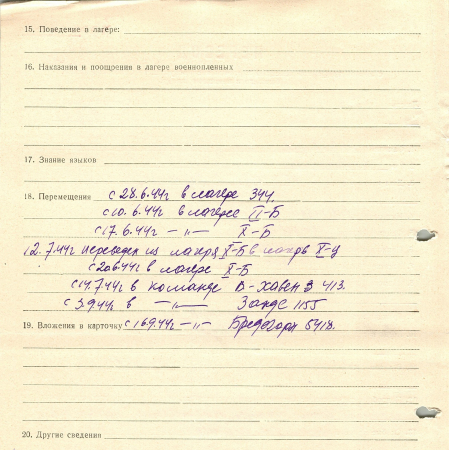 15. Поведение в лагере:
16. Наказания и поощрения в лагере военнопленных
17. Знание языков
18. Перемещения с 28.6.44г в лагере 344.
с 10.6.44г в лагере II-Б
с 17.6.44г -"- X-Б
12.7.44г переведен из лагеря X-Б в лагерь X-Ц
с 20.6.44г в лагере X-Б
с 14.7.44г в команде В-хавен 3 413.
с 3.9.44г в -"- Занде 1155
19. Вложения в карточку с 16.9.44г -"- Бредегорн 5418.
20. Другие сведения